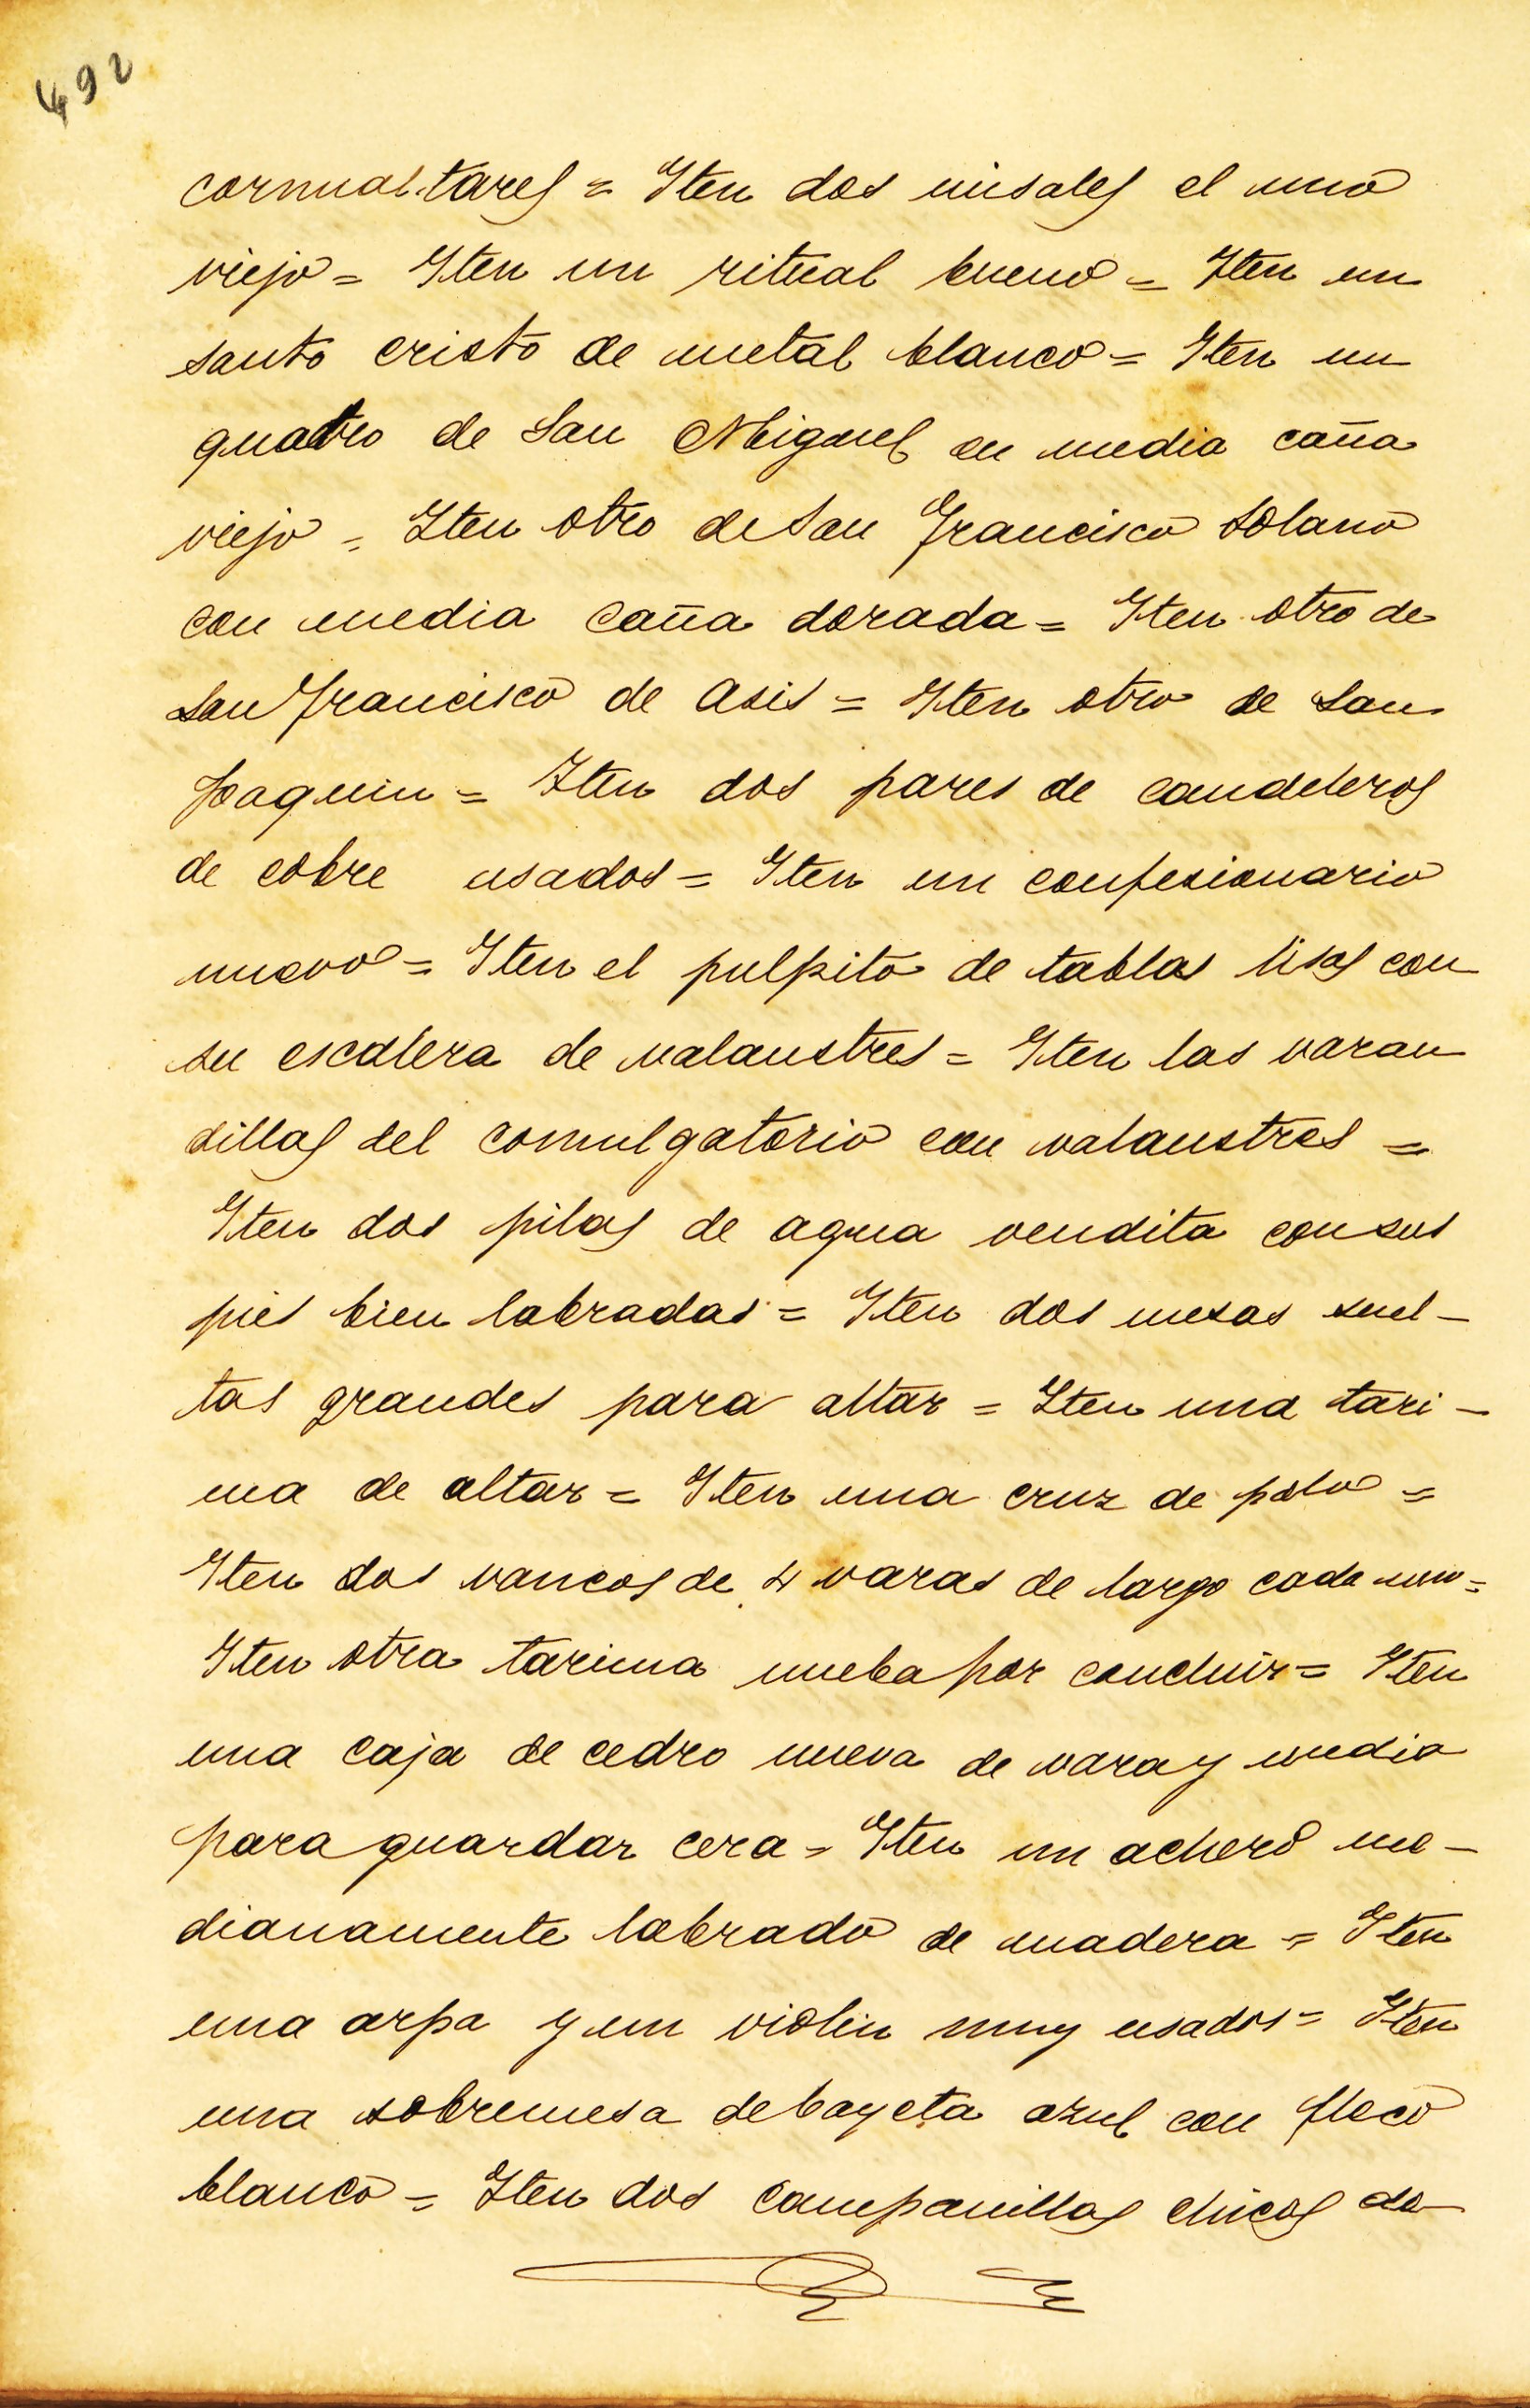 492
cornualtares = Iten dos misales el uno
viejo = Iten un ritual bueno = Iten un
santo cristo de metal blanco = Iten un
quatro de San Miguel en media caña
viejo = Iten otro de San Francisco Solano
con media caña dorada = Iten otro de
San Francisco de Asis = Iten otro de San
Joaquin = Iten dos pares de candeleros
de cobre usados = Iten un confesionario
nuevo = Iten el pulpito de tablas lisas con
su escalera de valaustres = Iten las varan
dillas del comulgatorio con valaustres =
Iten dos pilas de agua vendita con sus
pies bien labradas = Iten dos mesas suel-
tas grandes para altar = Iten una tari-
ma de altar = Iten una cruz de palo =
Iten dos vancos de 4 varas de largo cada uno =
Iten otra tarima nueba por concluir = Iten
una caja de cedro nueva de vara y media
para guardar cera = Iten un achero me-
dianamente labrado de madera = Iten
una arpa y un violin muy usados = Iten
una sobremesa de bayeta azul con fleco
blanco = Iten dos campanillas chicas de